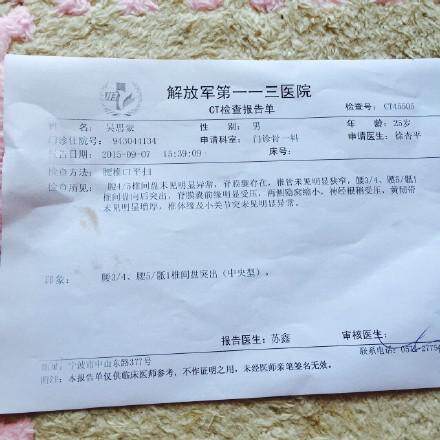 解放军第一一三医院
CT检查报告单
检查号: CT45505
姓 名: 吴思 性 别: 男 年 龄: 25岁
门诊住院号: 943044134 申请科室: 门诊骨一科 申请医生: 徐杏平
报告日期: 2015-09-07 15:39:09 床号:
检查方法: 腰椎CT平扫
检查所见: 腰4/5椎间盘未见明显异常, 脊膜囊存在, 椎管未见明显狭窄, 腰3/4、腰5/骶1
椎间盘向后突出, 脊膜囊前缘明显受压, 两侧隐窝缩小, 神经根稍受压, 黄韧带
未见明显增厚, 椎体缘及小关节突未见明显异常。
印象: 腰3/4、腰5/骶1椎间盘突出(中央型)。
报告医生: 苏鑫 审核医生:
地址: 宁波市中山东路377号 联系电话: 0574-2775
附注: 本报告单仅供临床医师参考, 不作证明之用, 未经医师亲笔签名无效。